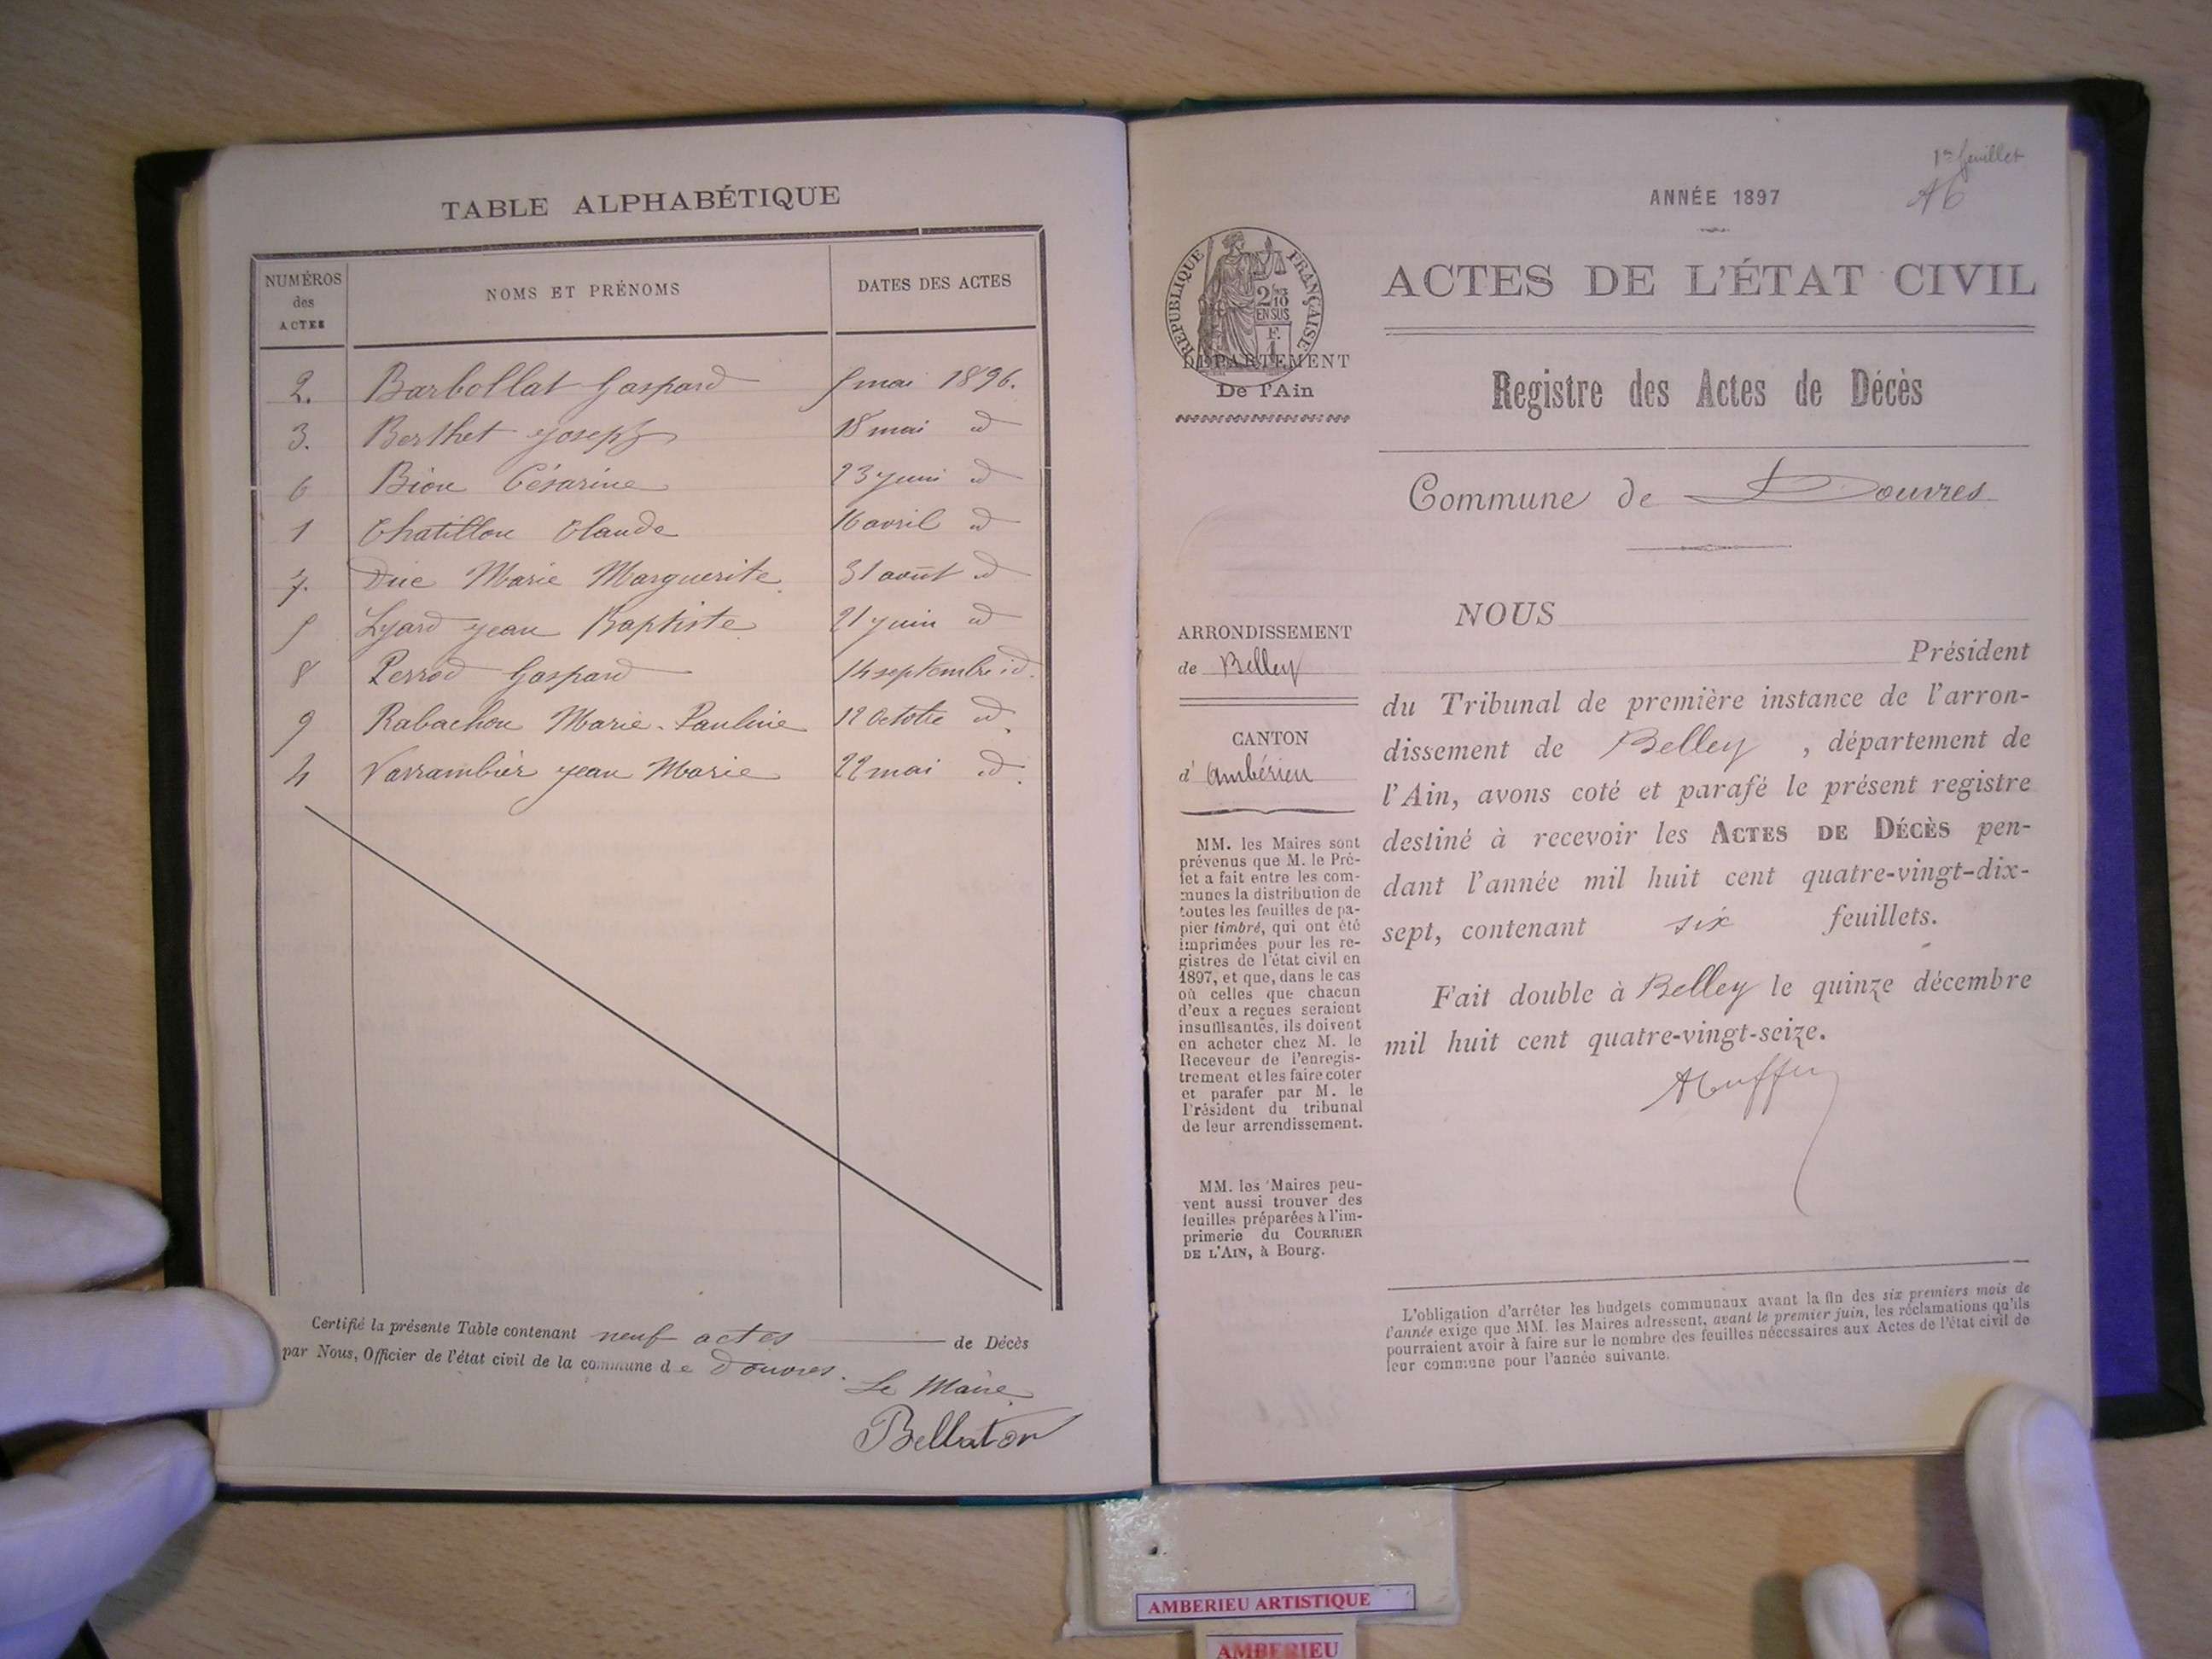 TABLE ALPHABÉTIQUE
NUMÉROS des ACTES
NOMS ET PRÉNOMS
DATES DES ACTES
2. Barbollat Gaspard 5 mai 1896.
3. Berthet Joseph 18 mai id
6 Bion Césarine 23 juin id
1 Chatillon Claude 16 avril id
7. Duc Marie Marguerite 31 août id
5 Lyard Jean Baptiste 21 juin id
8 Perrod Gaspard 14 septembre id.
9 Rabachon Marie-Pauline 12 Octobre id.
4 Varrambier Jean Marie 22 mai id.
Certifié la présente Table contenant neuf actes de Décès
par Nous, Officier de l'état civil de la commune de Douvres.
Le Maire
Bellaton
1er feuillet
ANNÉE 1897
RÉPUBLIQUE FRANÇAISE
2/10 EN SUS
F.
1
ACTES DE L'ÉTAT CIVIL
DÉPARTEMENT
De l'Ain
Registre des Actes de Décès
Commune de Douvres
ARRONDISSEMENT
de Belley
CANTON
d' Ambérieu
MM. les Maires sont
prévenus que M. le Pré-
fet a fait entre les com-
munes la distribution de
toutes les feuilles de pa-
pier timbré, qui ont été
imprimées pour les re-
gistres de l'état civil en
1897, et que, dans le cas
où celles que chacun
d'eux a reçues seraient
insuffisantes, ils doivent
en acheter chez M. le
Receveur de l'enregis-
trement et les faire coter
et parafer par M. le
Président du tribunal
de leur arrondissement.
MM. les Maires peu-
vent aussi trouver des
feuilles préparées à l'im-
primerie du COURRIER
DE L'AIN, à Bourg.
NOUS
Président
du Tribunal de première instance de l'arron-
dissement de Belley, département de
l'Ain, avons coté et parafé le présent registre
destiné à recevoir les ACTES DE DÉCÈS pen-
dant l'année mil huit cent quatre-vingt-dix-
sept, contenant six feuillets.
Fait double à Belley le quinze décembre
mil huit cent quatre-vingt-seize.
L'obligation d'arrêter les budgets communaux avant la fin des six premiers mois de
l'année exige que MM. les Maires adressent, avant le premier juin, les réclamations qu'ils
pourraient avoir à faire sur le nombre des feuilles nécessaires aux Actes de l'état civil de
leur commune pour l'année suivante.
AMBERIEU ARTISTIQUE
AMBERIEU